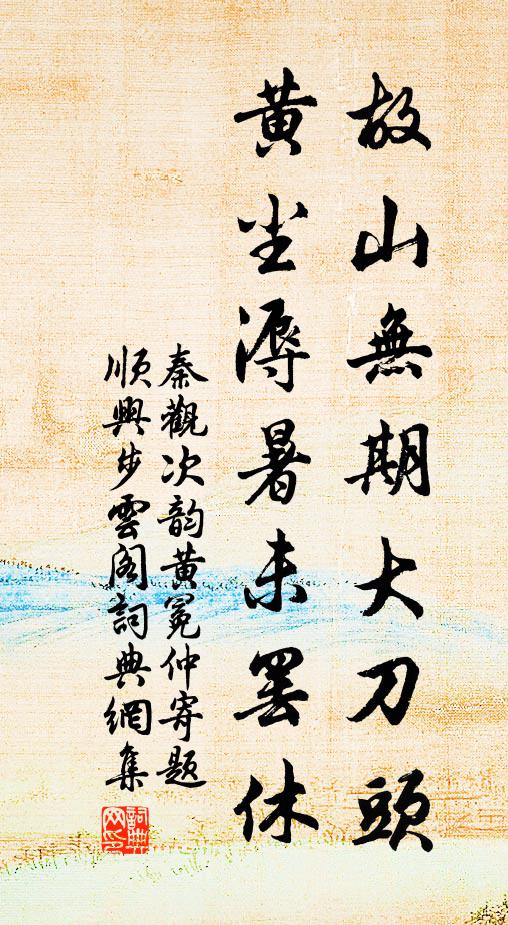 故山無期大刀頭
黃尘溽暑未罢休
秦觀次韵黃冕仲寄題
順興步雲閣詞典網集
詞典
网印